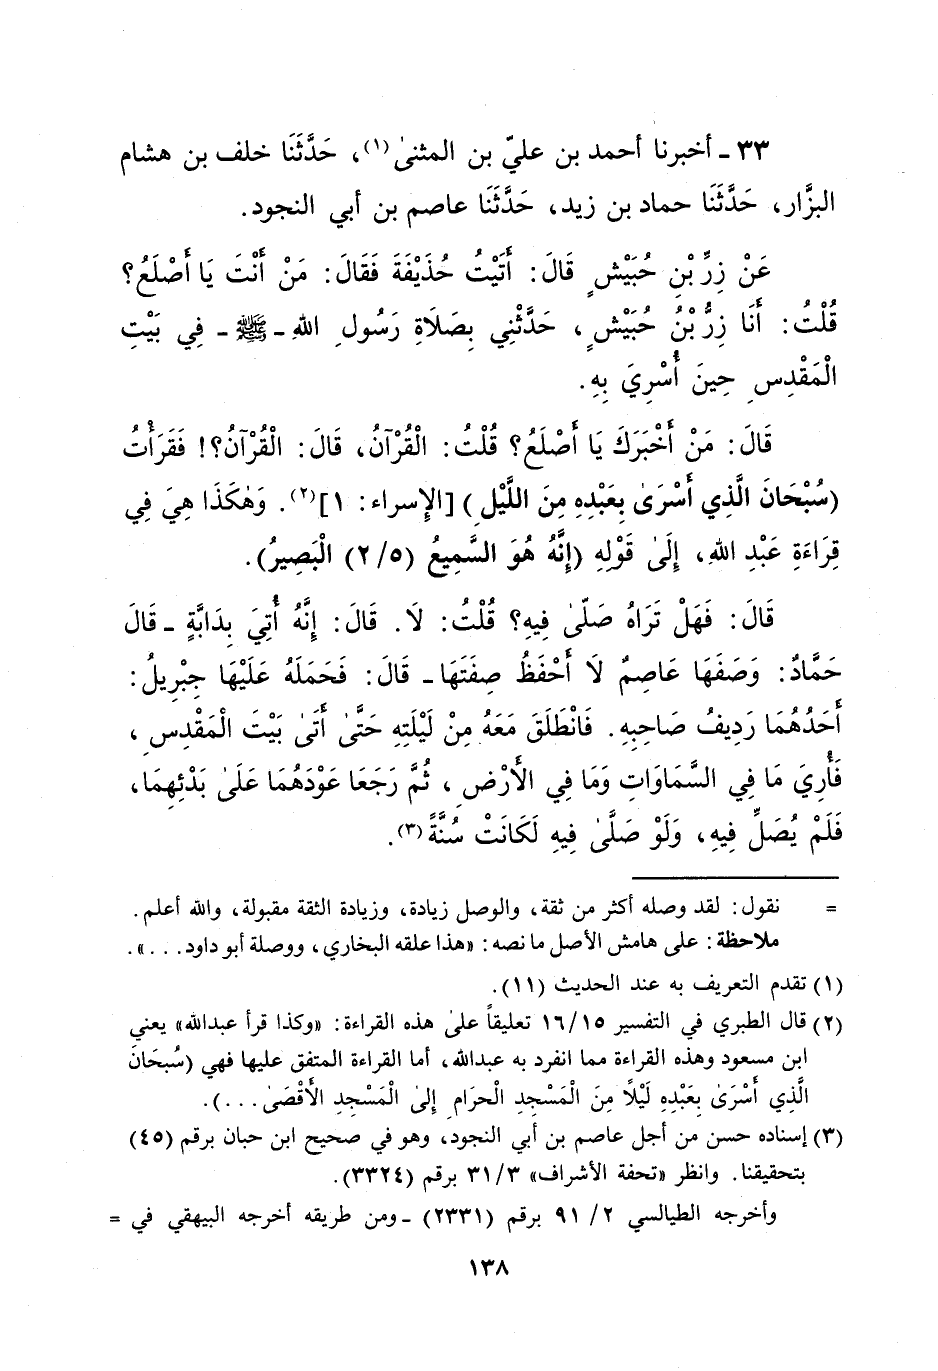 ٣٣ - أخبرنا أحمد بن عليّ بن المثنىٰ(١)، حَدَّثَنَا خلف بن هشام
البزَّار، حَدَّثَنَا حماد بن زيد، حَدَّثَنَا عاصم بن أبي النجود.
عَنْ زِرِّ بْنِ حُبَيْشٍ قَالَ: أَتَيْتُ حُذَيْفَةَ فَقَالَ: مَنْ أَنْتَ يَا أَصْلَعُ؟
قُلْتُ: أَنَا زِرُّ بْنُ حُبَيْشٍ، حَدِّثْنِي بِصَلَاةِ رَسُولِ اللهِ - ﷺ - فِي بَيْتِ
الْمَقْدِسِ حِينَ أُسْرِيَ بِهِ.
قَالَ: مَنْ أَخْبَرَكَ يَا أَصْلَعُ؟ قُلْتُ: الْقُرْآنُ، قَالَ: الْقُرْآنُ؟! فَقَرَأْتُ
(سُبْحَانَ الَّذِي أَسْرَىٰ بِعَبْدِهِ مِنَ اللَّيْلِ) [الإسراء: ١](٢). وَهٰكَذَا هِيَ فِي
قِرَاءَةِ عَبْدِ اللهِ، إِلَىٰ قَوْلِهِ (إِنَّهُ هُوَ السَّمِيعُ (٢/٥) الْبَصِيرُ).
قَالَ: فَهَلْ تَرَاهُ صَلَّىٰ فِيهِ؟ قُلْتُ: لَا. قَالَ: إِنَّهُ أُتِيَ بِدَابَّةٍ - قَالَ
حَمَّادٌ: وَصَفَهَا عَاصِمٌ لَا أَحْفَظُ صِفَتَهَا - قَالَ: فَحَمَلَهُ عَلَيْهَا جِبْرِيلُ:
أَحَدُهُمَا رَدِيفُ صَاحِبِهِ. فَانْطَلَقَ مَعَهُ مِنْ لَيْلَتِهِ حَتَّىٰ أَتَىٰ بَيْتَ الْمَقْدِسِ،
فَأُرِيَ مَا فِي السَّمَاوَاتِ وَمَا فِي الْأَرْضِ، ثُمَّ رَجَعَا عَوْدَهُمَا عَلَىٰ بَدْئِهِمَا،
فَلَمْ يُصَلِّ فِيهِ، وَلَوْ صَلَّىٰ فِيهِ لَكَانَتْ سُنَّةً(٣).
= نقول: لقد وصله أكثر من ثقة، والوصل زيادة، وزيادة الثقة مقبولة، والله أعلم.
ملاحظة: على هامش الأصل ما نصه: «هذا علقه البخاري، ووصلة أبو داود...».
(١) تقدم التعريف به عند الحديث (١١).
(٢) قال الطبري في التفسير ١٦/١٥ تعليقاً علىٰ هذه القراءة: «وكذا قرأ عبدالله» يعني
ابن مسعود وهذه القراءة مما انفرد به عبدالله، أما القراءة المتفق عليها فهي (سُبْحَانَ
الَّذِي أَسْرَىٰ بِعَبْدِهِ لَيْلًا مِنَ الْمَسْجِدِ الْحَرَامِ إِلىٰ الْمَسْجِدِ الْأَقْصَىٰ...).
(٣) إسناده حسن من أجل عاصم بن أبي النجود، وهو في صحيح ابن حبان برقم (٤٥)
بتحقيقنا. وانظر «تحفة الأشراف» ٣١/٣ برقم (٣٣٢٤).
وأخرجه الطيالسي ٢/ ٩١ برقم (٢٣٣١) - ومن طريقه أخرجه البيهقي في =
١٣٨